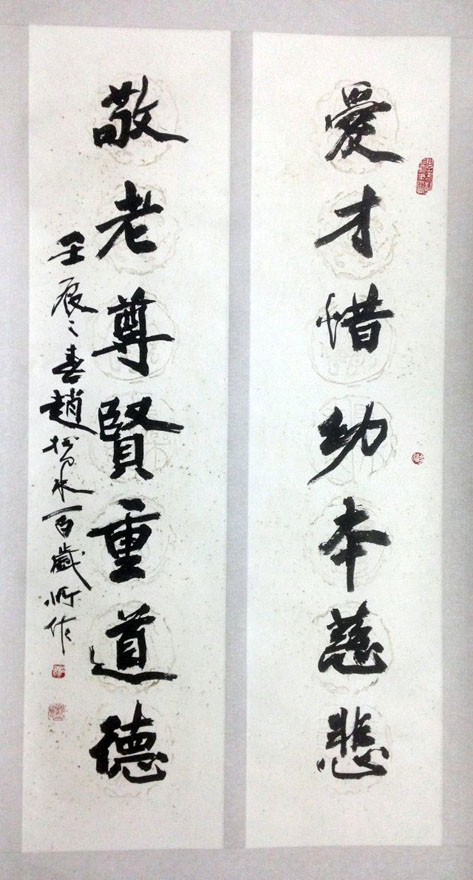 愛才惜幼本慈悲
敬老尊賢重道德
壬辰之趙松泉百歲所作